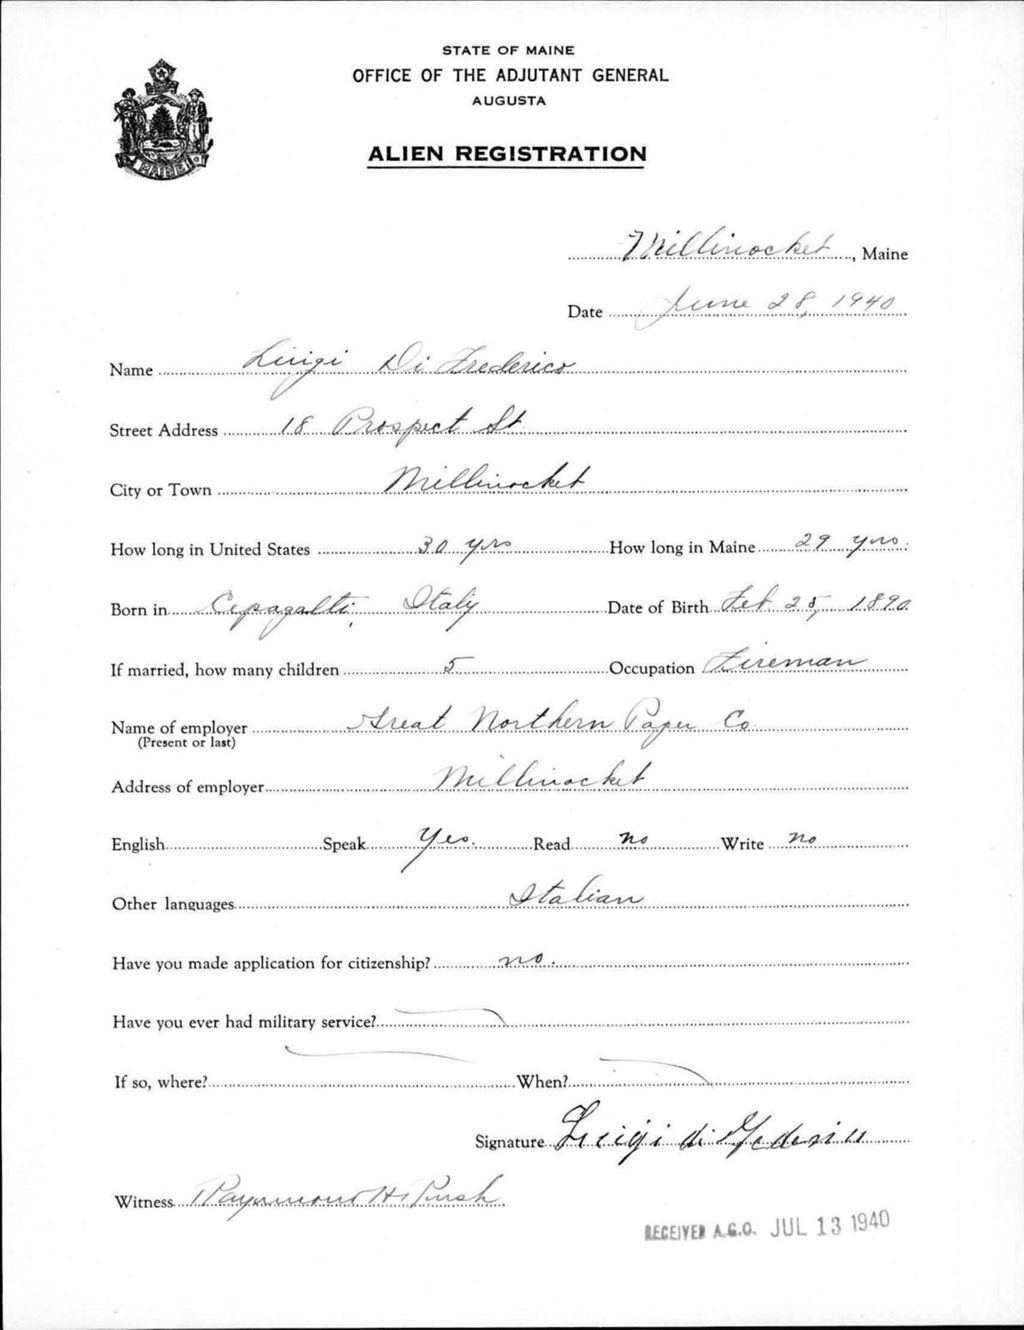 STATE OF MAINE
OFFICE OF THE ADJUTANT GENERAL
AUGUSTA
ALIEN REGISTRATION
MAINE
Millinocket, Maine
Date June 28, 1940
Name Luigi Di Frederico
Street Address 18 Prospect St
City or Town Millinocket
How long in United States 30 yrs How long in Maine 29 yrs.
Born in Cepagatti, Italy Date of Birth Feb 25, 1890
If married, how many children 5 Occupation Fireman
Name of employer Great Northern Paper Co
(Present or last)
Address of employer Millinocket
English Speak Yes. Read no Write no
Other languages Italian
Have you made application for citizenship? no.
Have you ever had military service?
If so, where? When?
Signature Luigi di
Witness Raymond H.
RECEIVED A.G.O. JUL 13 1940